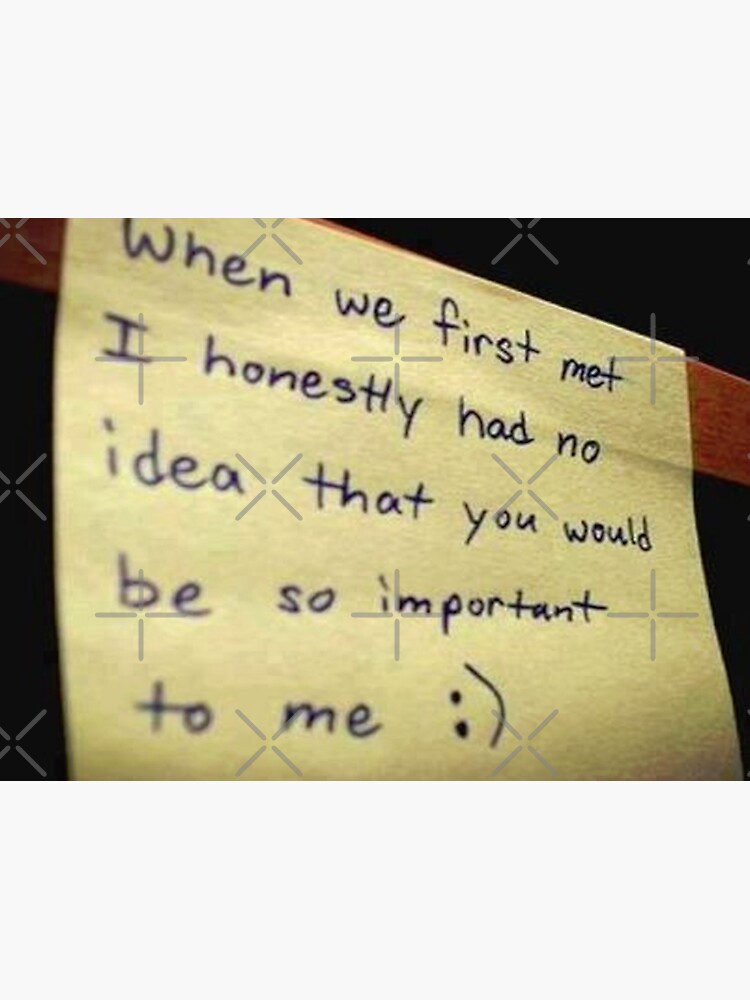 When we first met
I honestly had no
idea that you would
be so important
to me :)